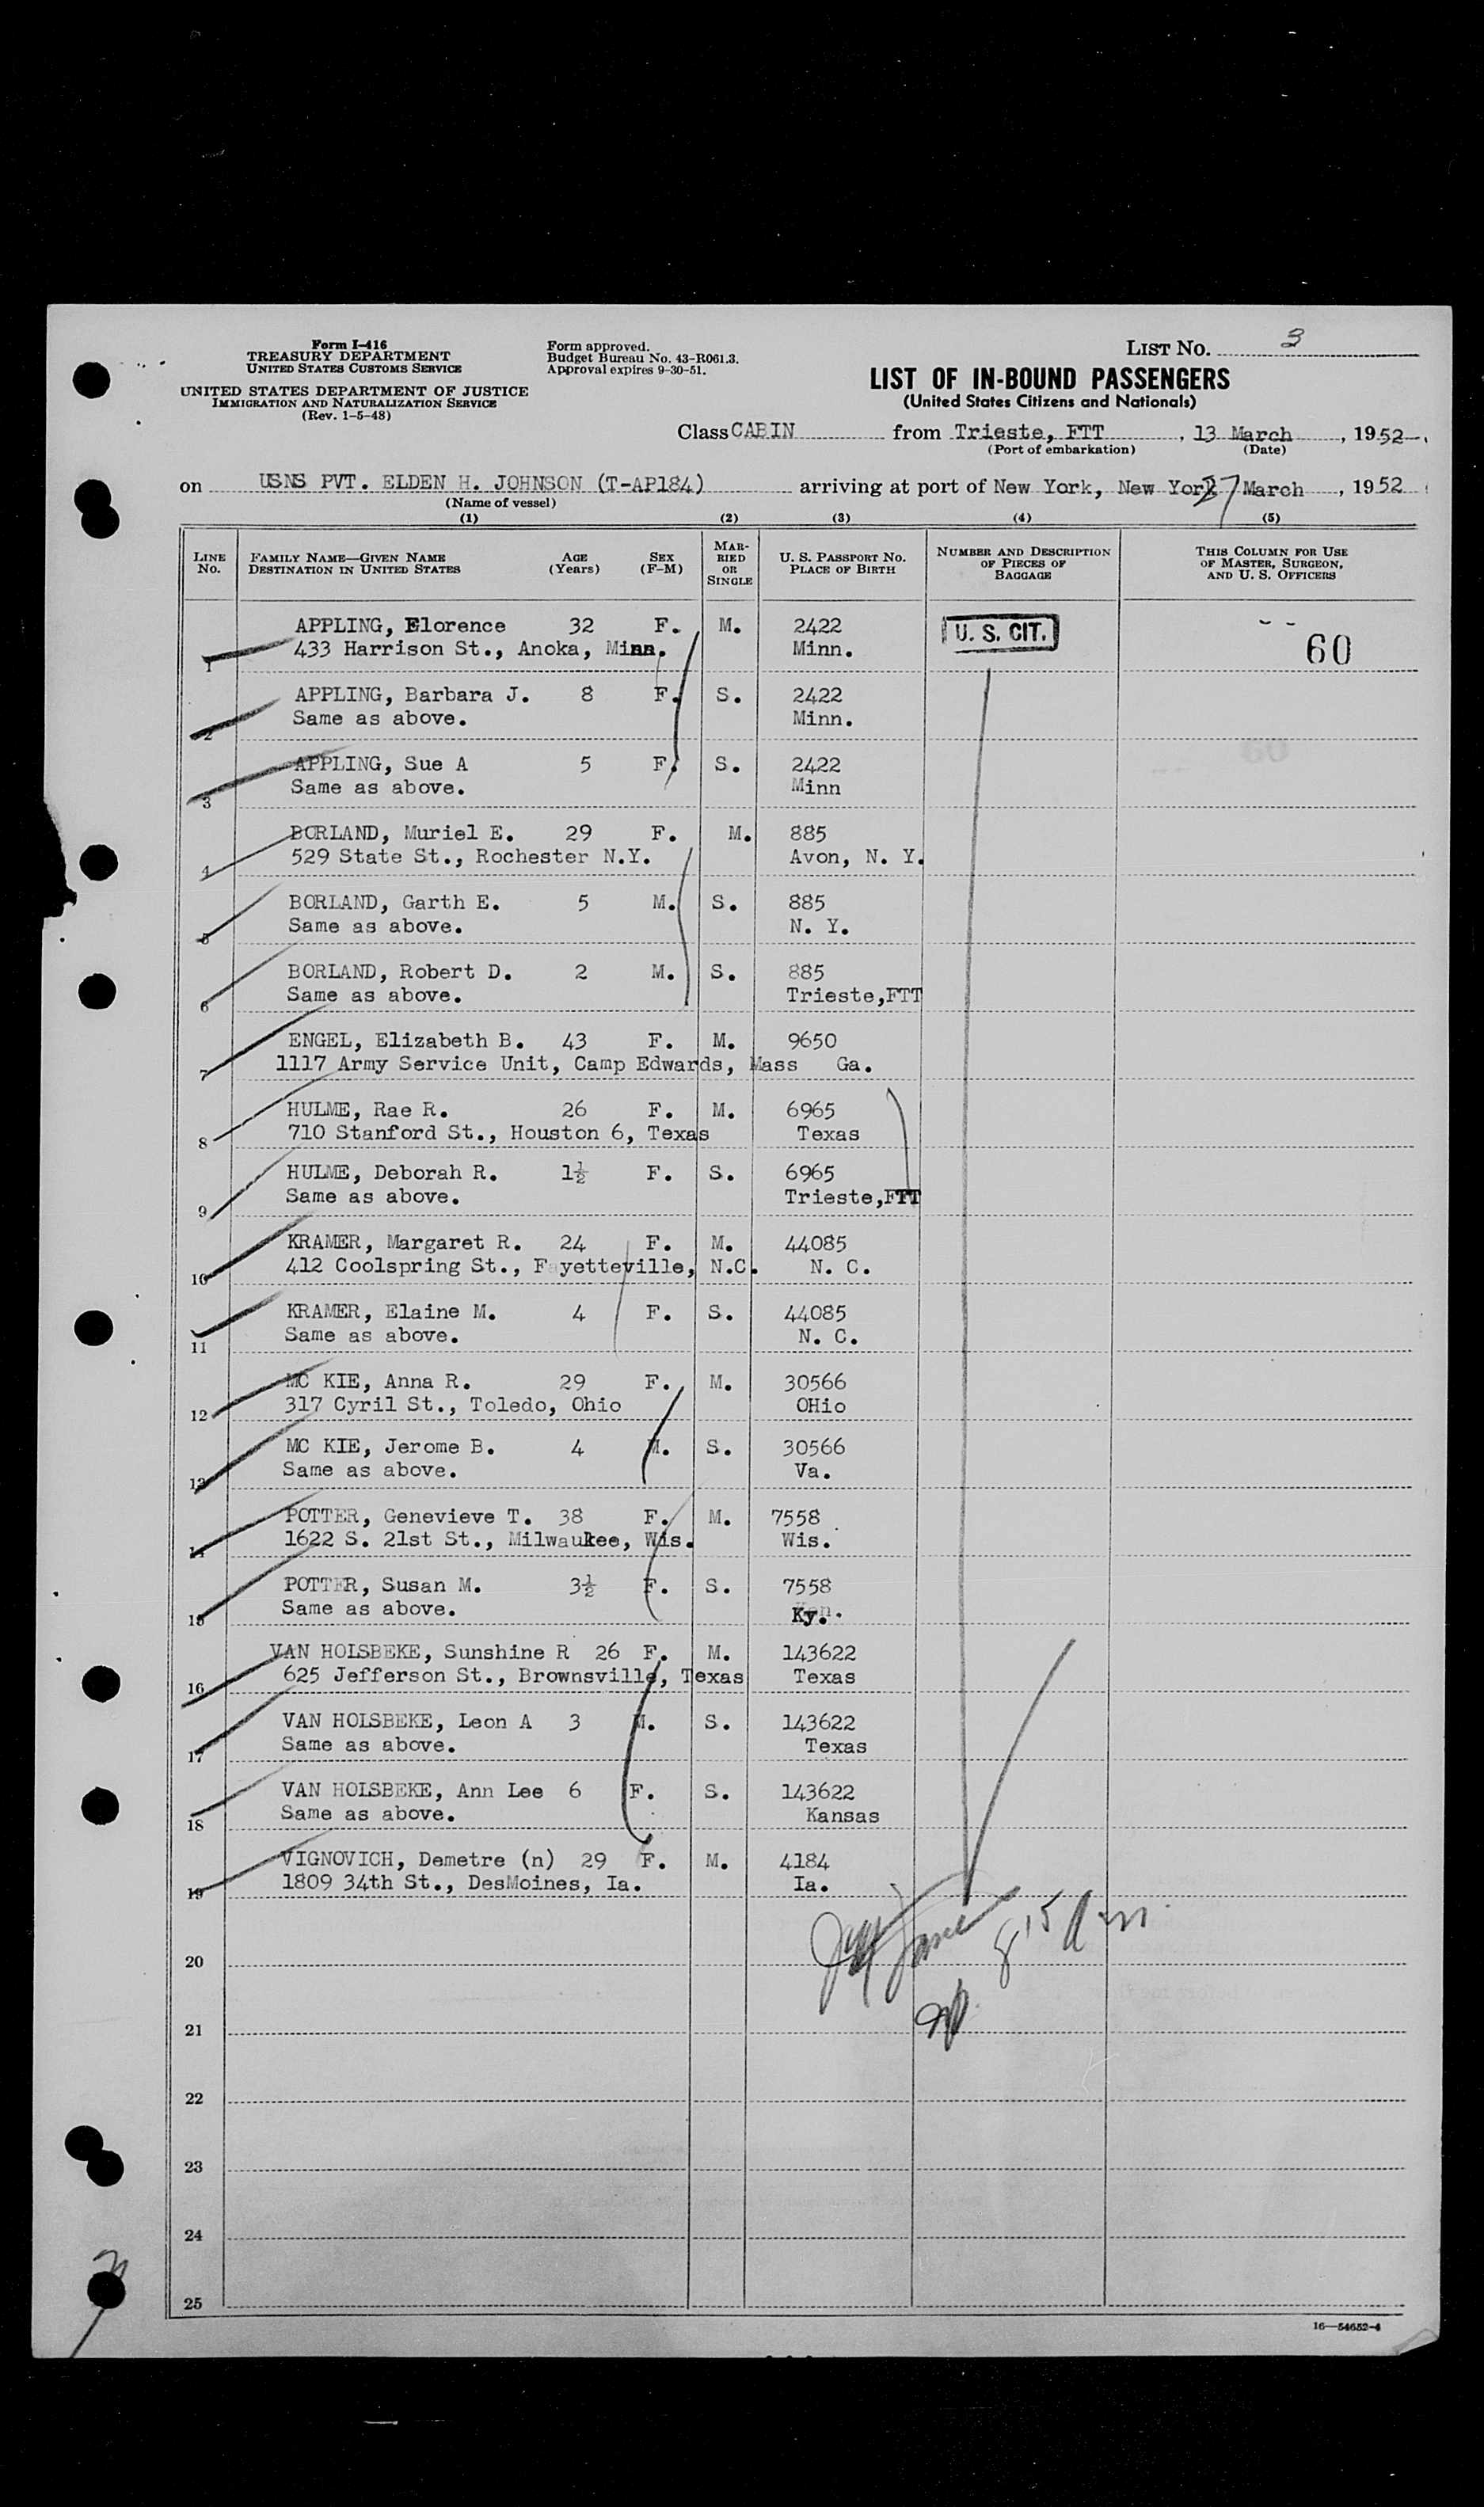 Form I-416
TREASURY DEPARTMENT
UNITED STATES CUSTOMS SERVICE
UNITED STATES DEPARTMENT OF JUSTICE
IMMIGRATION AND NATURALIZATION SERVICE
(Rev. 1-5-48)
Form approved.
Budget Bureau No. 43-R061.3.
Approval expires 9-30-51.
LIST NO. 3
LIST OF IN-BOUND PASSENGERS
(United States Citizens and Nationals)
Class CABIN from Trieste, FTT, 13 March, 1952
(Port of embarkation) (Date)
on USNS PVT. ELDEN H. JOHNSON (T-AP184) arriving at port of New York, New York 27 March, 1952
(Name of vessel)
(1) (2) (3) (4) (5)
LINE NO. FAMILY NAME—GIVEN NAME DESTINATION IN UNITED STATES AGE (Years) SEX (F-M) MARRIED OR SINGLE U. S. PASSPORT NO. PLACE OF BIRTH NUMBER AND DESCRIPTION OF PIECES OF BAGGAGE THIS COLUMN FOR USE OF MASTER, SURGEON, AND U. S. OFFICERS
1 APPLING, Florence 32 F. M. 2422 U. S. CIT. 60
433 Harrison St., Anoka, Minn. Minn.
2 APPLING, Barbara J. 8 F. S. 2422
Same as above. Minn.
3 APPLING, Sue A 5 F. S. 2422
Same as above. Minn
4 BORLAND, Muriel E. 29 F. M. 885
529 State St., Rochester N.Y. Avon, N. Y.
5 BORLAND, Garth E. 5 M. S. 885
Same as above. N. Y.
6 BORLAND, Robert D. 2 M. S. 885
Same as above. Trieste,FTT
7 ENGEL, Elizabeth B. 43 F. M. 9650
1117 Army Service Unit, Camp Edwards, Mass Ga.
8 HULME, Rae R. 26 F. M. 6965
710 Stanford St., Houston 6, Texas Texas
9 HULME, Deborah R. 1½ F. S. 6965
Same as above. Trieste,FTT
10 KRAMER, Margaret R. 24 F. M. 44085
412 Coolspring St., Fayetteville, N.C. N. C.
11 KRAMER, Elaine M. 4 F. S. 44085
Same as above. N. C.
12 MC KIE, Anna R. 29 F. M. 30566
317 Cyril St., Toledo, Ohio OHio
13 MC KIE, Jerome B. 4 M. S. 30566
Same as above. Va.
14 POTTER, Genevieve T. 38 F. M. 7558
1622 S. 21st St., Milwaukee, Wis. Wis.
15 POTTER, Susan M. 3½ F. S. 7558
Same as above. Ky.
16 VAN HOLSBEKE, Sunshine R 26 F. M. 143622
625 Jefferson St., Brownsville, Texas Texas
17 VAN HOLSBEKE, Leon A 3 M. S. 143622
Same as above. Texas
18 VAN HOLSBEKE, Ann Lee 6 F. S. 143622
Same as above. Kansas
19 VIGNOVICH, Demetre (n) 29 F. M. 4184
1809 34th St., DesMoines, Ia. Ia.
20
21
22
23
24
25
16—54652-4